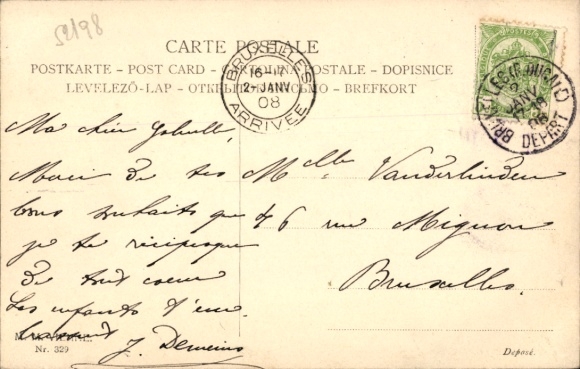 52198
CARTE POSTALE
POSTKARTE – POST CARD – CARTOLINA POSTALE – DOPISNICE
LEVELEZŐ-LAP – ОТКРЫТОЕ ПИСЬМО – BREFKORT
BRUXELLES
16-17
2-JANV
08
ARRIVÉE
BRUXELLES
2
JANV
DEPART
Ma chère
Merci de tes
bons souhaits que
je te réciproque
de tout coeur
Les enfants t'em
brassent
J.
Mlle Vanderlinden
76 rue Mignon
Bruxelles.
Nr. 329
Deposé.